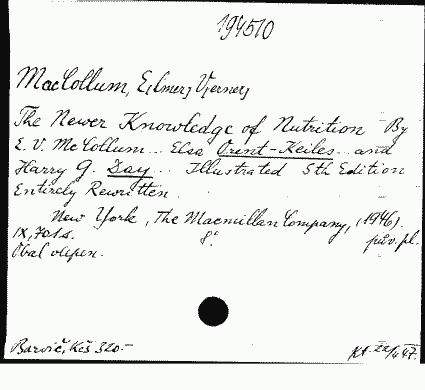 194510
MacCollum, E(lmer) V(erner)
The Newer Knowledge of Nutrition By
E. V. McCollum... Elsa Orent-Keiles... and
Harry G. Day... Illustrated 5th Edition
Entirely Rewritten.
New York, The Macmillan Company, (1946).
IX, 701 s. 8° pův. pl.
Obal vlepen.
Barvič, Kčs 320.-